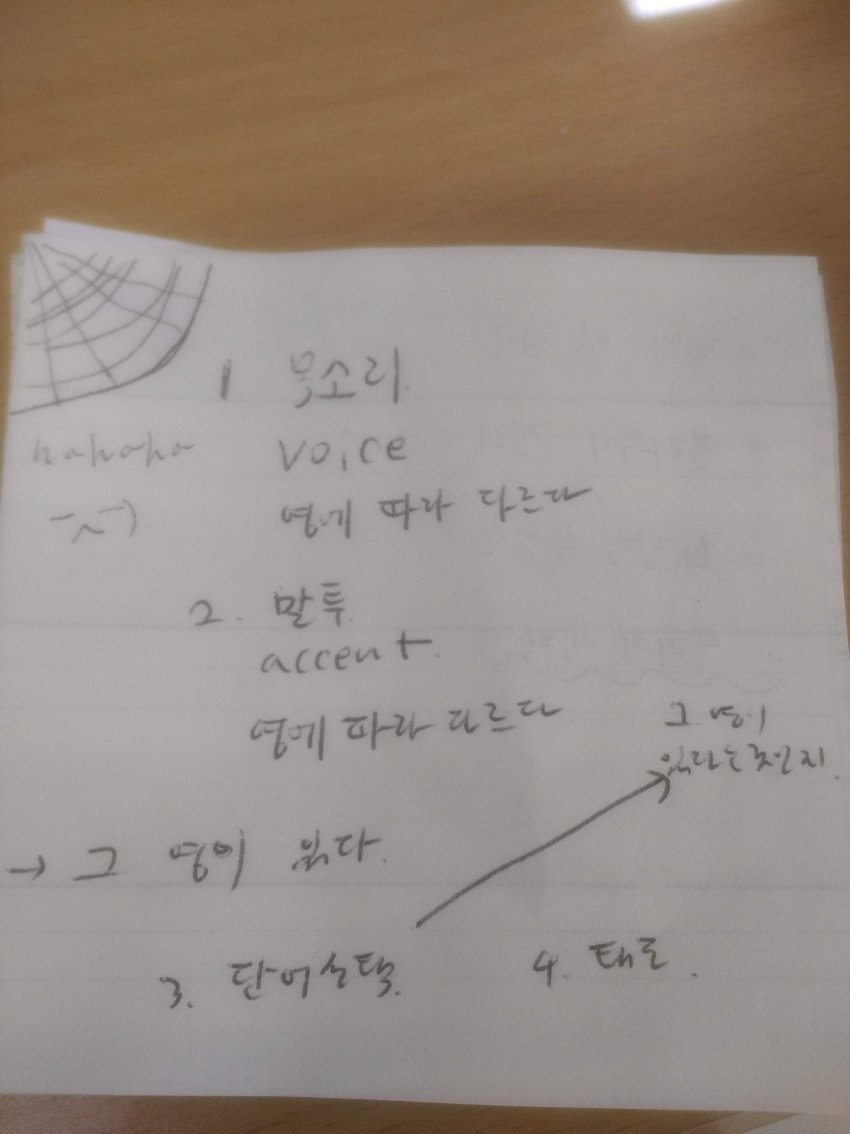 1 목소리.
hahaha voice
영에 따라 다르다
2. 말투.
accent.
영에 따라 다르다
그 영이
있다는
→ 그 영이 있다.
3. 단어선택.
4. 태도.